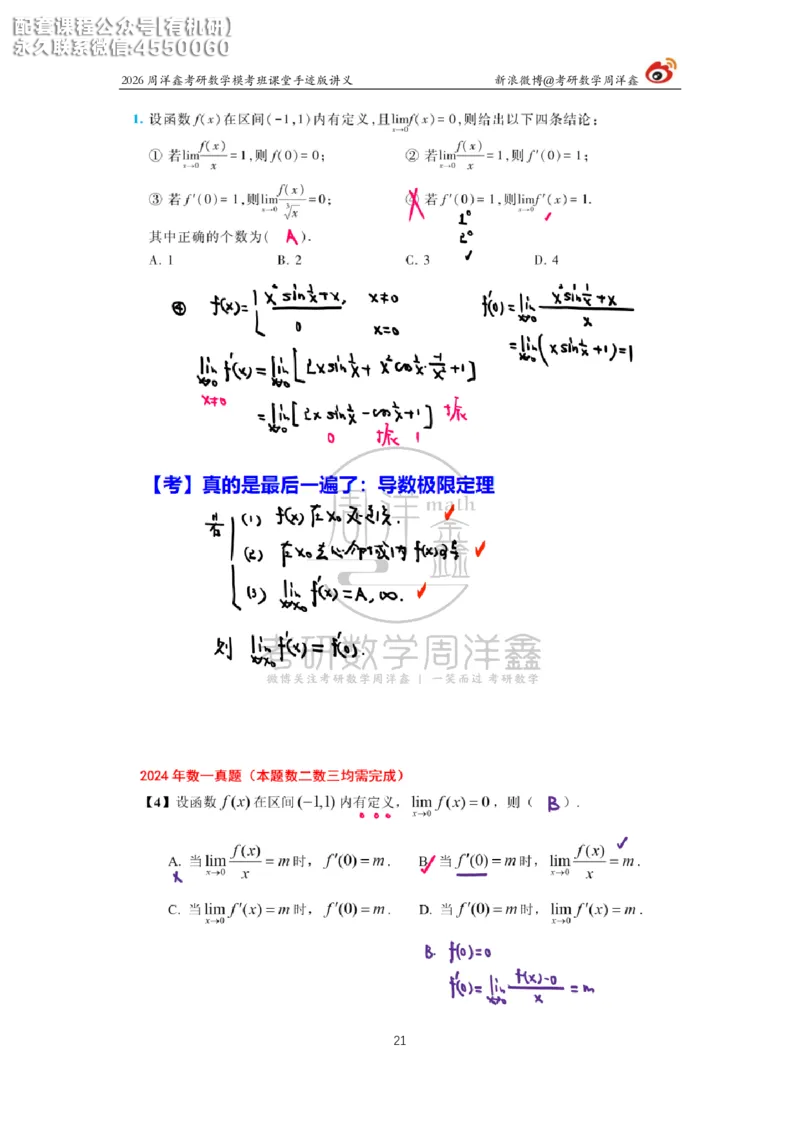 配套课程公众号[有机研]
永久联系微信:4550060
2026 周洋鑫考研数学模考班课堂手迹版讲义 新浪微博@考研数学周洋鑫
1. 设函数 f(x) 在区间(-1,1)内有定义,且lim_{x→0} f(x)=0,则给出以下四条结论:
① 若lim_{x→0} f(x)/x=1,则 f(0)=0; ② 若lim_{x→0} f(x)/x=1,则 f′(0)=1;
③ 若 f′(0)=1,则lim_{x→0} f(x)/∛x=0; ④ 若 f′(0)=1,则lim_{x→0} f′(x)=1.
1°
其中正确的个数为( A ). 2°
A. 1 B. 2 C. 3 ✓ D. 4
④ f(x)={ x² sin 1/x + x, x≠0 f′(0)=lim_{x→0} (x² sin 1/x + x)/x
0 x=0
=lim_{x→0}(x sin 1/x +1)=1
lim_{x→0} f′(x)=lim_{x→0}[2x sin 1/x + x² cos 1/x · -1/x² +1]
x≠0
=lim_{x→0}[2x sin 1/x - cos 1/x +1] 振
0 振 1
【考】真的是最后一遍了：导数极限定理
若 (1) f(x) 在 x₀ 处连续. ✓
(2) 在 x₀ 去心邻域内 f(x)可导 ✓
(3) lim_{x→x₀} f′(x)=A, ∞. ✓
则 lim_{x→x₀} f′(x)=f′(0).
周洋鑫 math
考研数学周洋鑫
微博关注考研数学周洋鑫 | 一笑而过 考研数学
2024 年数一真题（本题数二数三均需完成）
【4】设函数 f(x) 在区间 (−1,1) 内有定义， lim_{x→0} f(x)=0 ，则（ B ）.
A. 当 lim_{x→0} f(x)/x = m 时， f′(0)=m . B. 当 f′(0)=m 时， lim_{x→0} f(x)/x = m . ✓
C. 当 lim_{x→0} f′(x)=m 时， f′(0)=m . D. 当 f′(0)=m 时， lim_{x→0} f′(x)=m .
B. f(0)=0
f′(0)=lim_{x→0} (f(x)-0)/x = m
21